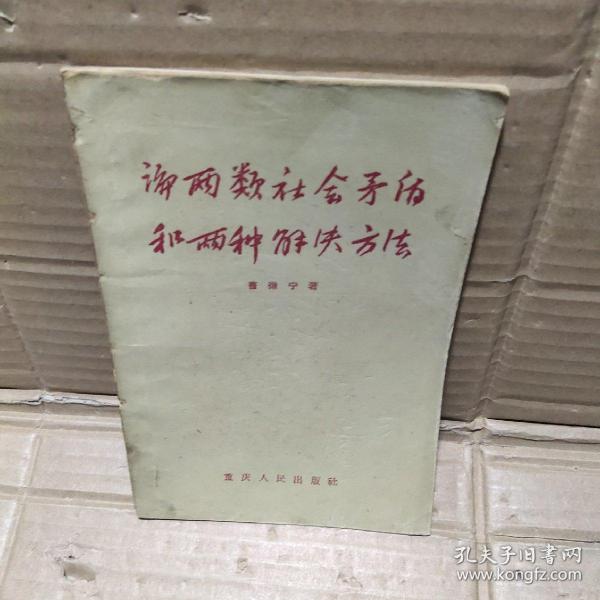 论两类社会矛盾
和两种解决方法
宁著
重庆人民出版社
孔夫子旧书网
www.kongfz.com